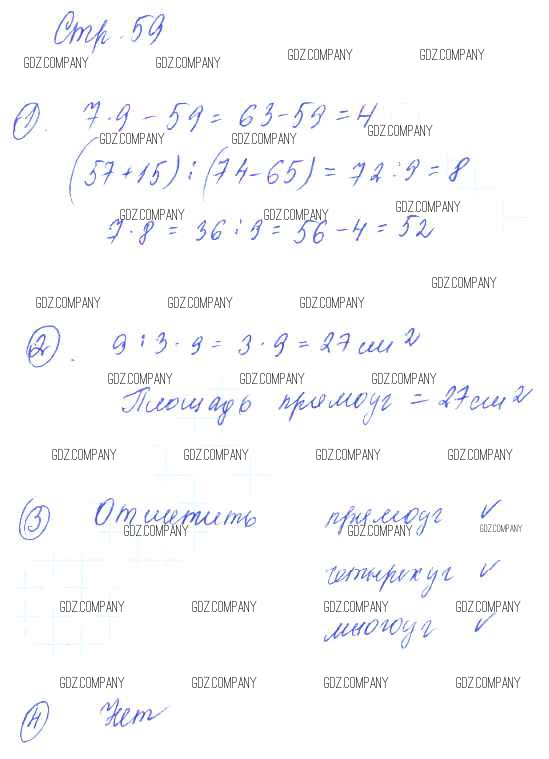 Стр. 59
GDZ.COMPANY GDZ.COMPANY GDZ.COMPANY GDZ.COMPANY
1. 7·9 - 59 = 63 - 59 = 4
GDZ.COMPANY GDZ.COMPANY GDZ.COMPANY
(57+15) : (74-65) = 72 : 9 = 8
GDZ.COMPANY GDZ.COMPANY GDZ.COMPANY
7·8 = 36 : 9 = 56 - 4 = 52
GDZ.COMPANY GDZ.COMPANY GDZ.COMPANY GDZ.COMPANY
2. 9 : 3 · 9 = 3 · 9 = 27 см 2
GDZ.COMPANY GDZ.COMPANY GDZ.COMPANY
Площадь прямоуг = 27 см 2
GDZ.COMPANY GDZ.COMPANY GDZ.COMPANY GDZ.COMPANY
3 Отметить прямоуг ✓
GDZ.COMPANY GDZ.COMPANY GDZ.COMPANY
четырехуг ✓
GDZ.COMPANY GDZ.COMPANY GDZ.COMPANY GDZ.COMPANY
многоуг ✓
GDZ.COMPANY GDZ.COMPANY GDZ.COMPANY GDZ.COMPANY
4 Нет